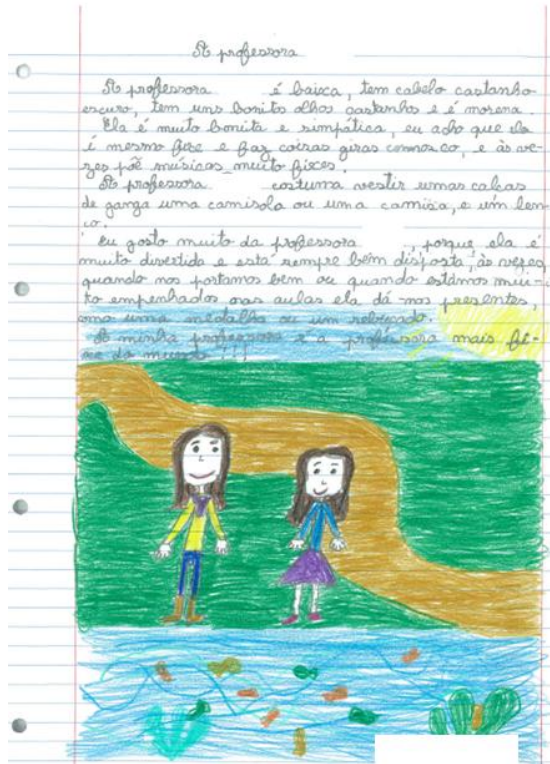 A professora
A professora é baixa, tem cabelo castanho
escuro, tem uns bonitos olhos castanhos e é morena.
Ela é muito bonita e simpática, eu acho que ela
é mesmo fixe e faz coisas giras connosco, e às ve-
zes põe músicas muito fixes.
A professora costuma vestir umas calças
de ganga uma camisola ou uma camisa, e um len-
ço.
Eu gosto muito da professora , porque ela é
muito divertida e está sempre bem disposta, às vezes,
quando nos portamos bem ou quando estámos mui-
to empenhados nas aulas ela dá-nos presentes,
como uma medalha ou um rebuçado.
A minha professora é a professora mais fi-
xe do mundo!!!